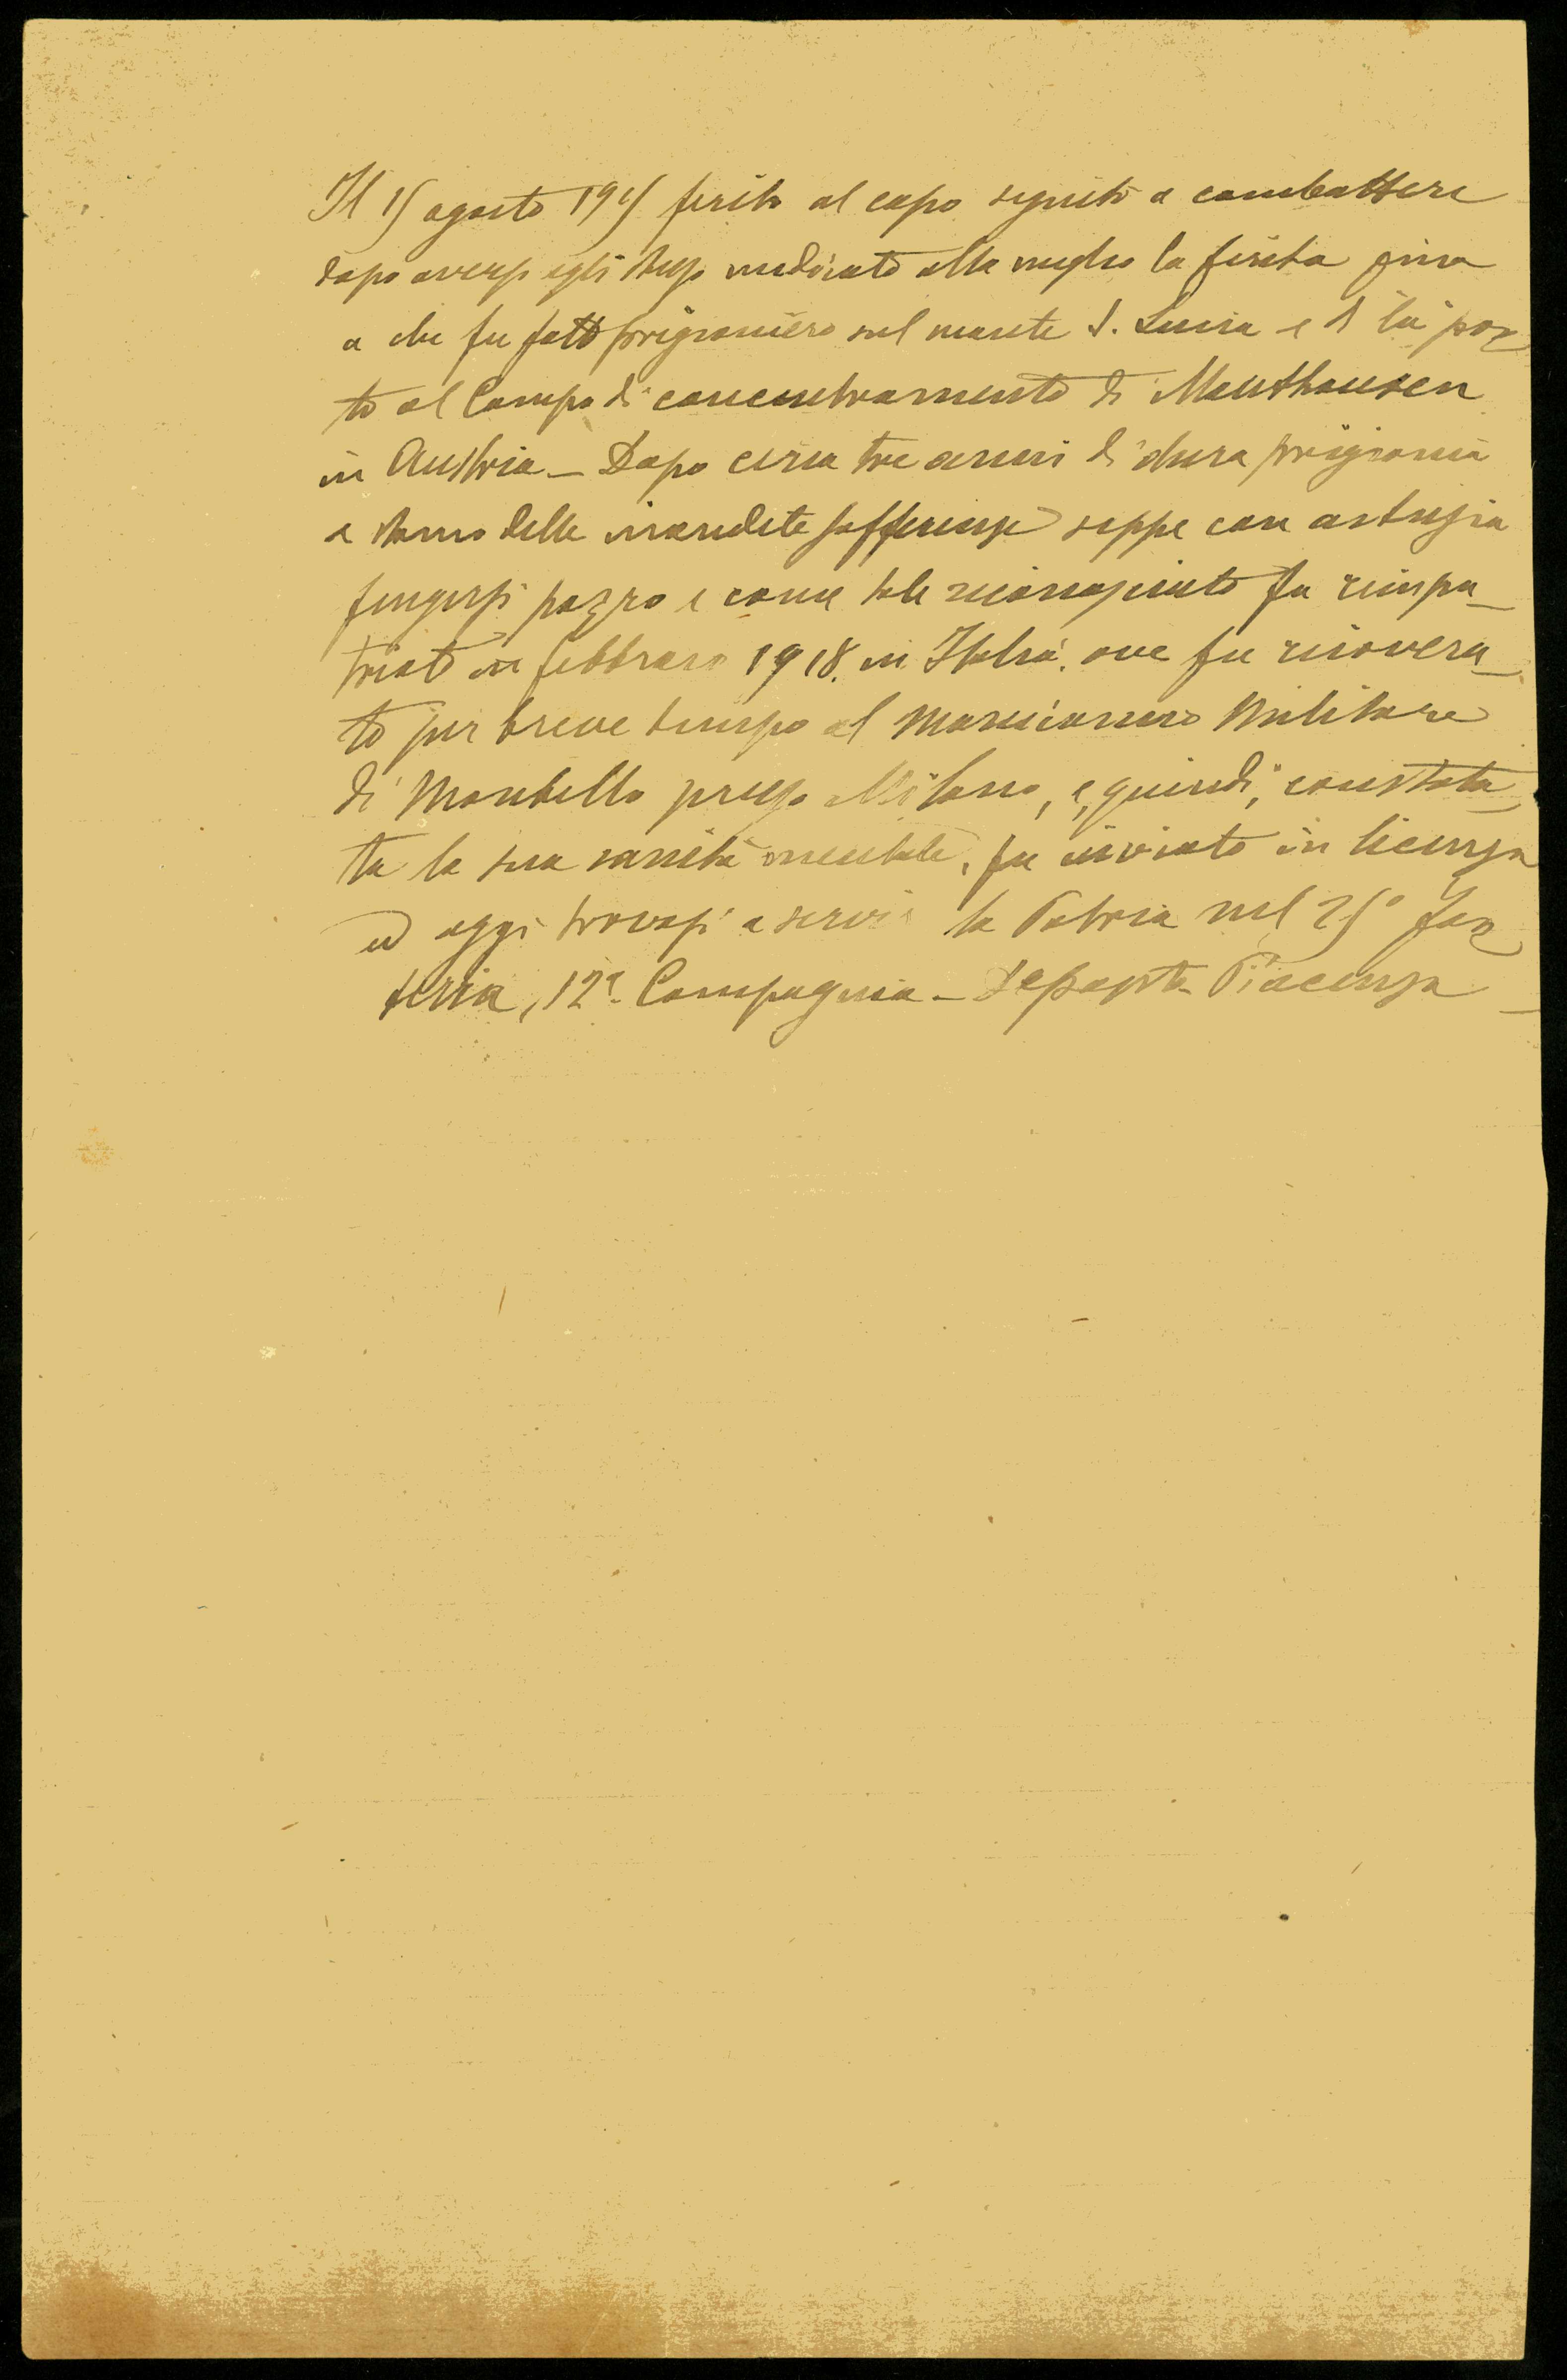 Il 15 agosto 1915 ferito al capo seguitò a combattere
dopo aversi egli stesso medicato alla meglio la ferita fino
a che fu fatto prigioniero sul monte S. Lucia e di lì por
to al Campo di concentramento di Mauthausen
in Austria – Dopo circa tre anni di dura prigionia
e stanco delle inaudite sofferenze seppe con astuzia
fingersi pazzo e come tale riconosciuto fu rimpa_
triato in febbraro 1918. in Italia, ove fu ricovera_
to per breve tempo al Manicomio Militare
di Mombello presso Milano, e, quindi, constata_
ta la sua sanità mentale, fu inviato in licenza
ed oggi trovasi a servir la Patria nel 25° Fan
teria, 12ª Compagnia – Deposito Piacenza –